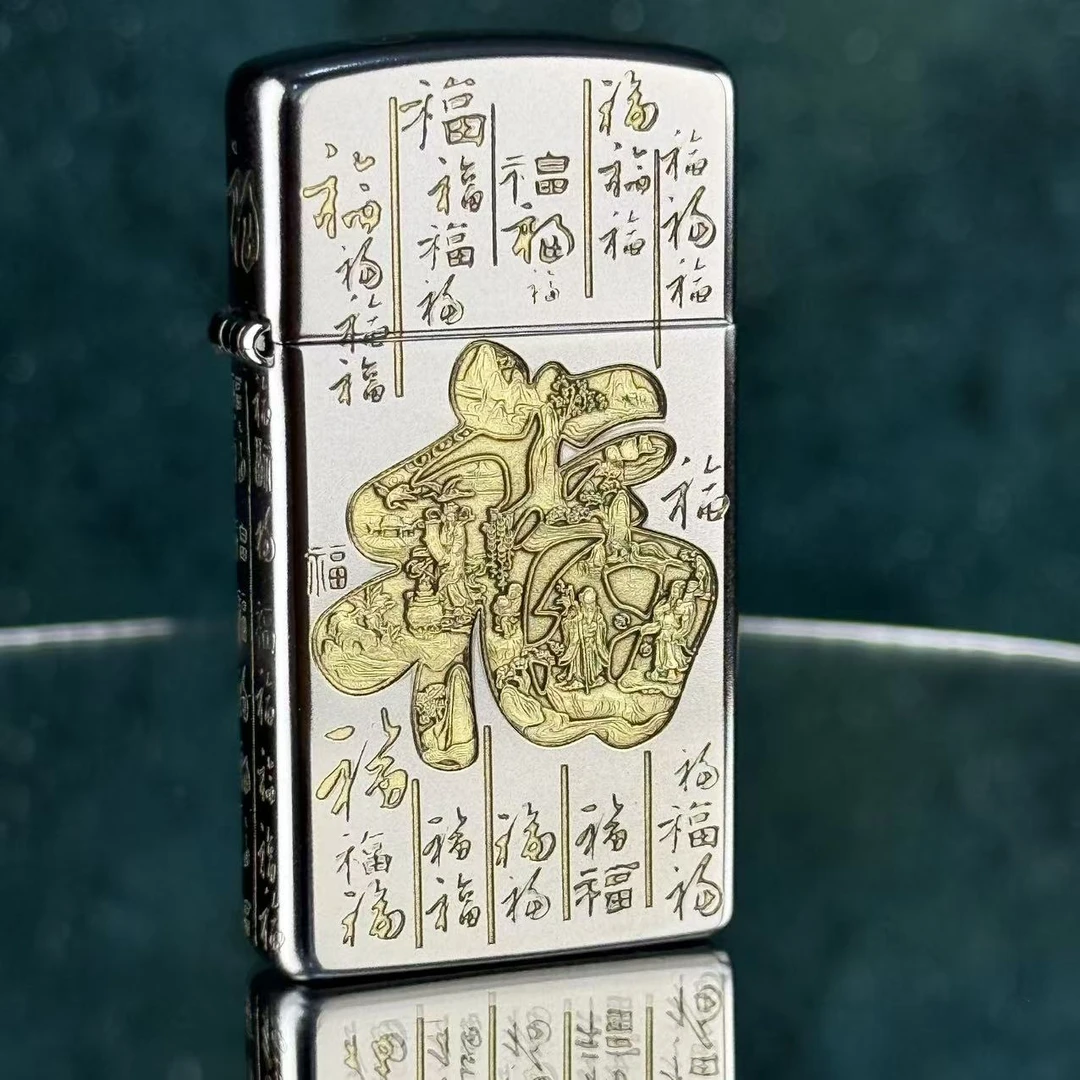 福福福
福福福
福福福
福福福福
福福福福
福
福
福
福福福
福福
福福
福福
福福福